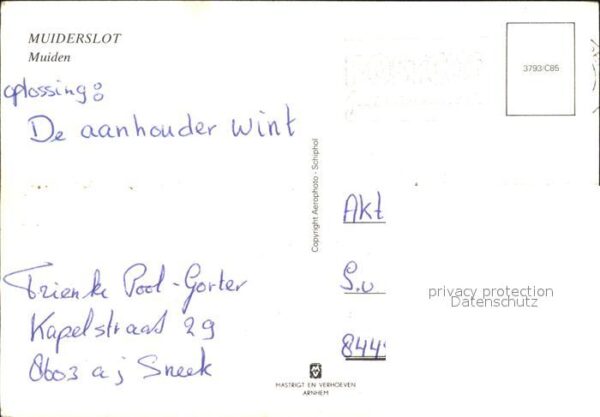 MUIDERSLOT
Muiden
oplossing:
De aanhouder wint
3793/C85
Copyright Aerophoto - Schiphol
Akt
S.v
844
privacy protection
Datenschutz
Trienke Pool-Gorter
Kapelstraat 29
8603 aj Sneek
MASTRIGT EN VERHOEVEN
ARNHEM